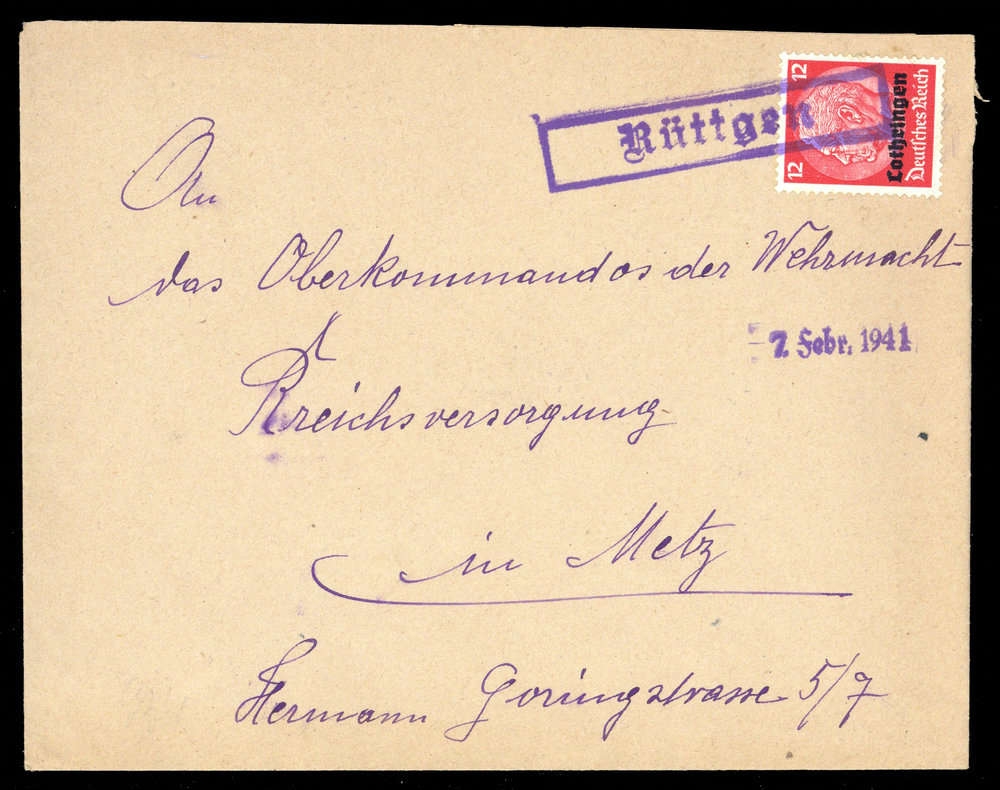 Rüttgen
12 12
Lothringen
Deutsches Reich
An
das Oberkommandos der Wehrmacht
- 7. Febr. 1941
Rreichsversorgung
in Metz
Hermann Goringstrasse 5/7